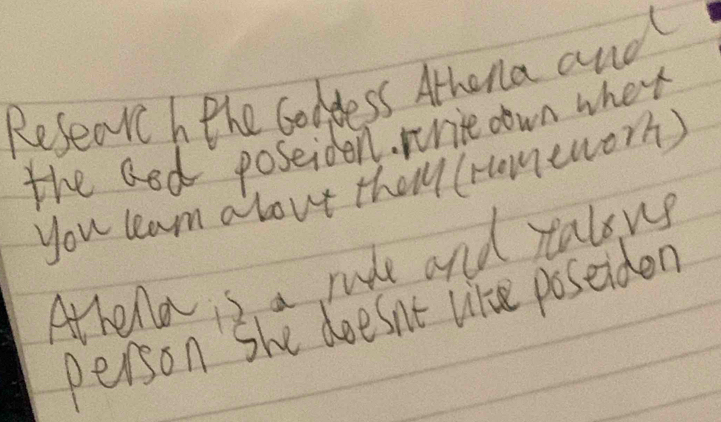 Research the Goddess Athena and
the God poseidon. write down what
you learn about them (Homework)
Athena is a rude and
person she doesnt like poseidon